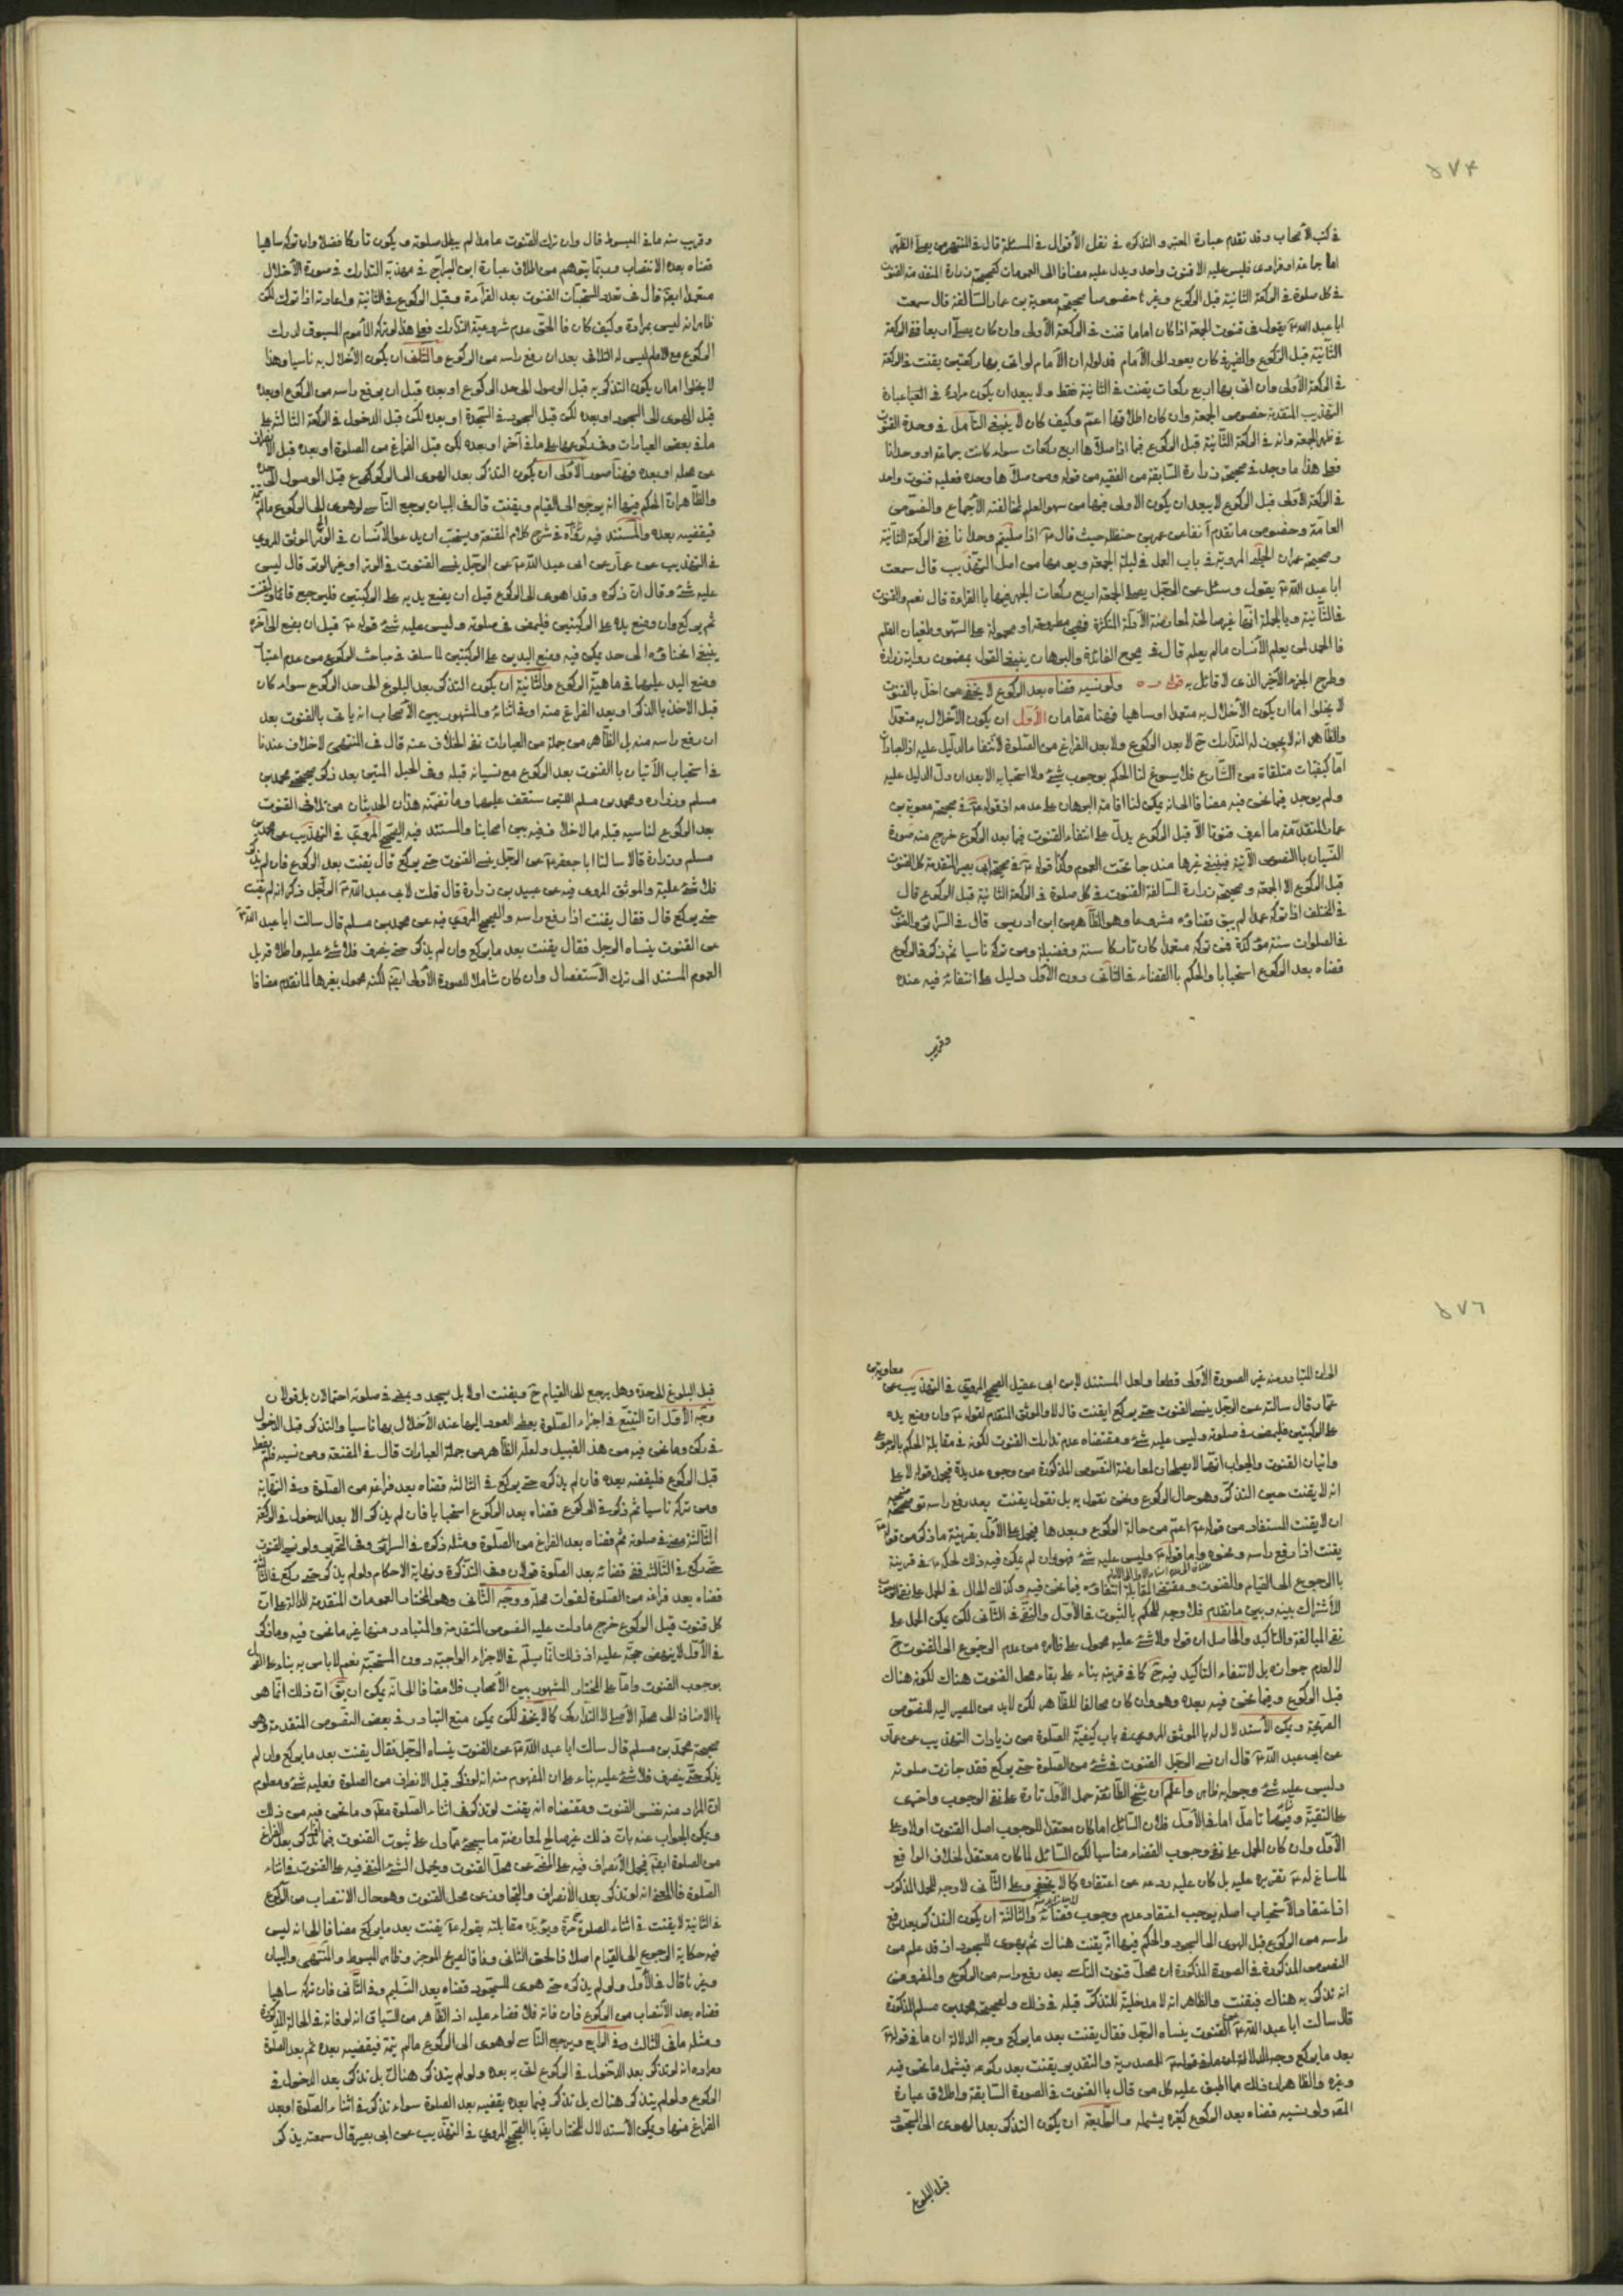 ٥٧٤
في كتب الأصحاب وقد تقدم عبارة المعتبر والتذكرة في نقل الأقوال في المسئلة قال في المنتهى من يصلي الظهر
اما جماعة او فرادى فليس عليه الا قنوت واحد ويدل عليه مضافا الى العمومات كصحيحة زرارة المتقدمة القنوت
في كل صلوة في الركعة الثانية قبل الركوع وغيرها خصوصا صحيحة معوية بن عمار السالفة قال سمعت
ابا عبد الله ع يقول في قنوت الجمعة اذا كان اماما قنت في الركعة الأولى وان كان يصلي اربعا ففي الركعة
الثانية قبل الركوع
في الركعة الأولى وان اتى بها اربع ركعات يقنت في الثانية فقط ولا يبعد ان يكون مراده في
التهذيب المتقدمة خصوص الجمعة وان كان اطلاقها اعم وكيف كان لا ينبغي التأمل في وحدة القنوت
في ظهر الجمعة وانه في الركعة الثانية قبل الركوع فيما اذا صلاها اربع ركعات سواء كانت جماعة او وحدانا
فعلى هذا ما وجد في صحيحة زرارة السابقة من الفقيه من قوله ومن صلاها وحده فعليه قنوت واحد
في الركعة الأولى قبل الركوع لا يبعد ان يكون الاولى فيها من سهو القلم لمخالفته الأجماع والنصوص
العامة وخصوص ما تقدم آنفا عن عمر بن حنظلة حيث قال ع اذا صليتم وحدانا ففي الركعة الثانية
وصحيحة عمران الحلبي المروية في باب العمل في ليلة الجمعة ويومها من اصل التهذيب قال سمعت
ابا عبد الله ع يقول وسئل عن الرجل يصلي الجمعة اربع ركعات ايجهر فيها بالقراءة قال نعم والقنوت
في الثانية وبالجملة انها غير صالحة لمعارضة الأدلة المتكثرة فهي مطروحة او محمولة على السهو وطغيان القلم
فالحمد لمن يعلم الأنسان ما لم يعلم قال في مجمع الفائدة والبرهان ينبغي القول بمضمون رواية زرارة
وطرح الجزء الآخر الذي لا قائل به قوله ره ولو نسيه قضاه بعد الركوع لا يخفى من اخل بالقنوت
لا يخلوا اما ان يكون الأخلال به متعمدا او ساهيا فهنا مقامان الأول ان يكون الأخلال به متعمدا
والظاهر انه لا يجوز له التدارك ح لا بعد الركوع ولا بعد الفراغ من الصلوة لأنتفاء الدليل عليه اذ العبادات
انما كيفيات متلقاة من الشارع فلا يسوغ لنا الحكم بوجوب شئ ولا استحبابه الا بعد ان دل الدليل عليه
ولم يوجد فيما نحن فيه مضافا الى انه يمكن لنا اقامة البرهان على عدمه اذ قوله ع في صحيحة معوية بن
عمار المتقدمة ما اعرف قنوتا الا قبل الركوع يدل على انتفاء القنوت فيما بعد الركوع خرج منه صورة
النسيان بالنصوص الآتية فيبقى غيرها مندرجا تحت العموم وكذا قوله ع في صحيحة ابي بصير المتقدمة كل القنوت
قبل الركوع الا الجمعة وصحيحة زرارة السالفة القنوت في كل صلوة في الركعة الثانية قبل الركوع قال
في المختلف اذا تركه عمدا لم يبق قضاؤه مشروعا وهو الظاهر من ابن ادريس قال في السرائر والقنوت
في الصلوات سنة مؤكدة فمن تركه متعمدا كان تاركا سنة وفضيلة ومن تركه ناسيا ثم ذكره في الركوع
قضاه بعد الركوع استحبابا والحكم بالقضاء في الثاني دون الأول دليل على انتفائه فيه عنده
وقريب
وقريب منه ما في المبسوط قال وان ترك القنوت عامدا لم يبطل صلوته ويكون تاركا فضلا وان تركه ساهيا
قضاه بعد الانتصاب وربما يتوهم من اطلاق عبارة ابن البراج في مهذبه التدارك في صورة الأخلال
متعمدا ايضا قال في تعداد المستحبات القنوت بعد القراءة وقبل الركوع في الثانية واعادته اذا ترك لكن
ظاهرا انه ليس بمراده وكيف كان فالحق عدم شرعية التدارك فعلى هذا لو تركه المأموم المسبوق لدرك
الركوع مع الامام ليس له التلافي بعد ان رفع راسه من الركوع والثاني ان يكون الأخلال به ناسيا وهذا
لا يخلوا اما ان يكون التذكر به قبل الوصول الى حد الركوع او بعده قبل ان يرفع راسه من الركوع او بعده
قبل الهوي الى السجود او بعده لكن قبل السجود في السجدة او بعده لكن قبل الدخول في الركعة الثالثة على
ما في بعض العبارات وفي ركوعها على ما في آخر او بعده لكن قبل الفراغ من الصلوة او بعده قبل الانصراف
عن محله او بعده فهنا صور الأولى ان يكون التذكر بعد الهوي الى الركوع قبل الوصول الى حده
والظاهر ان الحكم فيها انه يرجع الى القيام ويقنت قال في البيان يرجع الناسي لو هوى الى الركوع ما لم
فيقضيه بعده والمستند فيه رواه في شرح كلام المقنعة ويستحب ان يدعو الأنسان في الوتر الموثق المروي
في التهذيب عن عمار عن ابي عبد الله ع عن الرجل ينسى القنوت في الوتر او غير الوتر قال ليس
عليه شئ وقال ان ذكره وقد اهوى الى الركوع قبل ان يضع يديه على الركبتين فليرجع قائما وليقنت
ثم يركع وان وضع يده على الركبتين فليمض في صلوته وليس عليه شئ قوله ع قبل ان يضع الى آخره
ينبغي انحناؤه الى حد يمكن فيه وضع اليدين على الركبتين لما سلف في مباحث الركوع من عدم اعتبار
وضع اليد عليهما في ماهية الركوع والثانية ان يكون التذكر بعد البلوغ الى حد الركوع سواء كان
قبل الاخذ بالذكر او بعد الفراغ منه او في اثنائه والمشهور بين الأصحاب انه يأتي بالقنوت بعد
ان رفع راسه منه بل الظاهر من جملة من العبارات نفي الخلاف عنه قال في المنتهى لا خلاف عندنا
في استحباب الأتيان بالقنوت بعد الركوع مع نسيانه قبله وفي الحبل المتين بعد ذكر صحيحتي محمد بن
مسلم وزرارة ومحمد بن مسلم اللتين ستقف عليهما وما تضمنه هذان الحديثان من تلافي القنوت
بعد الركوع لناسيه قبله مما لا خلاف فيه بين اصحابنا والمستند فيه الصحيح المروي في التهذيب عن محمد بن
مسلم وزرارة قالا سالنا ابا جعفر ع عن الرجل ينسى القنوت حتى يركع قال يقنت بعد الركوع فان لم يذكر
فلا شئ عليه والموثق المروي فيه عن عبيد بن زرارة قال قلت لابي عبد الله ع الرجل ذكر انه لم يقنت
حتى يركع قال فقال يقنت اذا رفع راسه والصحيح المروي فيه عن محمد بن مسلم قال سالت ابا عبد الله ع
عن القنوت ينساه الرجل فقال يقنت بعد ما يركع وان لم يذكر حتى ينصرف فلا شئ عليه واطلاقه بل
العموم المستند الى ترك الأستفصال وان كان شاملا للصورة الأولى ايضا لكنه محمول بغيرها لما تقدم مضافا
٥٧٦
الى ان المتبادر منه غير الصورة الأولى قطعا ولعل المستند لابن ابي عقيل الصحيح المروي في التهذيب عن معاوية بن
عمار قال سالته عن الرجل ينسى القنوت حتى يركع ايقنت قال لا والموثق المتقدم لقوله ع وان وضع يده
على الركبتين فليمض في صلوته وليس عليه شئ ومقتضاه عدم تدارك القنوت لكونه في مقابلة الحكم بالرجوع
واتيان القنوت والجواب انهما لا يصلحان لمعارضة النصوص المذكورة من وجوه عديدة فيحمل قوله لا على
انه لا يقنت حين التذكر وهو حال الركوع ونحن نقول به بل نقول يقنت بعد رفع راسه
ان لا يقنت المستفاد من قوله ع اعم من حالة الركوع وبعدها فيحمل على الأول بقرينة ما ذكر من قوله ع
يقنت اذا رفع راسه ونحوه واما قوله ع وليس عليه شئ فهو وان لم يكن فيه ذلك لحكمه ع في قرينة
بالرجوع الى القيام والقنوت ومقتضى المقابلة انتفاؤه فيما نحن فيه وكذلك الحال في الحمل على نفي الوجوب
للأشتراك بينه وبين ما تقدم فلا وجه للحكم بالثبوت في الأول والنفي في الثاني لكن يمكن الحمل على
نفي المبالغة والتاكيد والحاصل ان قوله ولا شئ عليه محمول على ظاهره من عدم الرجوع الى القنوت ح
لا لعدم جوازه بل لانتفاء التاكيد فيه ح كما في قرينه بناء على بقاء محل القنوت هناك لكونه هناك
قبل الركوع وفيما نحن فيه بعده وهو وان كان مخالفا للظاهر لكن لابد من المصير اليه للنصوص
الصريحة ويمكن الأستدلال له بالموثق المروي في باب كيفية الصلوة من زيادات التهذيب عن عمار
عن ابي عبد الله ع قال ان نسي الرجل القنوت في شئ من الصلوة حتى يركع فقد جازت صلوته
وليس عليه شئ وجوابه ظاهر واعلم ان شيخ الطائفة حمل الأول تارة على نفي الوجوب واخرى
على التقية وفيهما تامل اما في الأول فلان السائل اما كان معتقدا لوجوب اصل القنوت اولا وعلى
الأول وان كان الحمل على نفي وجوب القضاء مناسبا لكن السائل لما كان معتقدا لخلاف الواقع
لما ساغ له ع تقريره عليه بل كان عليه ردعه عن اعتقاده كما لا يخفى وعلى الثاني لا وجه للحمل المذكور
اذ اعتقاد الأستحباب اصله يوجب اعتقاد عدم وجوب قضائه والثالثة ان يكون التذكر بعد رفع
راسه من الركوع قبل الهوى الى السجود والحكم فيها انه يقنت هناك ثم يهوي للسجود اذ قد علم من
النصوص المذكورة في الصورة المذكورة ان محل قنوت الناسي بعد رفع راسه من الركوع والمفروض
انه تذكر به هناك فيقنت والظاهر انه لا مدخلية للتذكر قبله في ذلك ولصحيحة محمد بن مسلم المذكورة
قال سالت ابا عبد الله ع عن القنوت ينساه الرجل فقال يقنت بعد ما يركع وجه الدلالة ان ما في قوله ع
بعد ما يركع وجه الدلالة ان ما في قوله ع المصدرية والتقدير يقنت بعد ركوعه فيشمل ما نحن فيه
وغيره والظاهر ان ذلك مما اطبق عليه كل من قال بالقنوت في الصورة السابقة واطلاق عبارة
المص ولو نسيه قضاه بعد الركوع كغيره يشمله والرابعة ان يكون التذكر بعد الهوى الى السجود
قبل البلوغ
قبل البلوغ الى حده وهل يرجع الى القيام ح ويقنت اولا بل يسجد ويمضي في صلوته احتمالان بل قولان
وجه الأول ان التتبع في اجزاء الصلوة يعطي العود اليها عند الأخلال بها ناسيا والتذكر قبل الدخول
في ركن وما نحن فيه من هذا القبيل ولعله الظاهر من جملة العبارات قال في المقنعة ومن نسيه فلم يفعله
قبل الركوع فليقضه بعده فان لم يذكره حتى يركع في الثالثة قضاه بعد فراغه من الصلوة وفي النهاية
ومن تركه ناسيا ثم ذكره في الركوع قضاه بعد الركوع استحبابا فان لم يذكر الا بعد الدخول في الركعة
الثالثة مضى في صلوته ثم قضاه بعد الفراغ من الصلوة ومثله ذكره في السرائر وفي التحرير ولو نسي القنوت
حتى ركع في الثالثة ففي قضائه بعد الصلوة قولان وفي التذكرة ونهاية الاحكام ولو لم يذكر حتى ركع في الثالثة
قضاه بعد فراغه من الصلوة لفوات محله ووجه الثاني وهو المختار العمومات المتقدمة الدالة على ان
كل قنوت قبل الركوع خرج ما دلت عليه النصوص المتقدمة والمتبادر منها غير ما نحن فيه وما ذكر
في الأول لا ينهض حجة عليه اذ ذلك انما يسلم في الاجزاء الواجبة دون المستحبة نعم لا باس به بناء على القول
بوجوب القنوت واما على المختار المشهور بين الأصحاب فلا مضافا الى انه يمكن ان يق ان ذلك انما هو
بالاضافة الى محله الأصلي لا التداركي كما لا يخفى لكن يمكن منع التبادر في بعض النصوص المتقدمة وهو
صحيحة محمد بن مسلم قال سالت ابا عبد الله ع عن القنوت ينساه الرجل فقال يقنت بعد ما يركع وان لم
يذكر حتى ينصرف فلا شئ عليه بناء على ان المفهوم منه انه لو ذكر قبل الانصراف من الصلوة فعليه شئ ومعلوم
ان المراد منه نفس القنوت ومقتضاه انه يقنت لو تذكر في اثناء الصلوة مطلقا وما نحن فيه من ذلك
ويمكن الجواب عنه بان ذلك غير صالح لمعارضة ما سيجئ مما دل على ثبوت القنوت فيما اذا ذكر بعد الفراغ
من الصلوة ايضا فيحمل الأنصراف فيه على المضي عن محل القنوت ويحمل الشئ المنفي فيه على القنوت في اثناء
الصلوة فالمعنى انه لو تذكر بعد الأنصراف والتجاوز عن محل القنوت وهو حال الانتصاب من الركوع
في الثانية لا يقنت في اثناء الصلوة ويؤيده مقابلته بقوله ع يقنت بعد ما يركع مضافا الى انه ليس
فيه حكاية الرجوع الى القيام اصلا فالحق الثاني وفاقا لصريح الموجز وظاهر المبسوط والمنتهى والبيان
وغيرها قال في الأول ولو لم يذكره حتى هوى للسجود قضاه بعد التسليم وفي الثاني فان تركه ساهيا
قضاه بعد الأنتصاب من الركوع فان فاته فلا قضاء عليه اذ الظاهر من السياق انه لو فاته في الحالة المذكورة
ومثله ما في الثالث وفي الرابع ويرجع الناسي لو هوى الى الركوع ما لم يتمه فيقضيه بعده ثم بعد الصلوة
ومراده انه لو تذكر بعد الدخول في الركوع اتى به بعده ولو لم يتذكر هناك بل تذكر بعد الدخول في
الركوع ولو لم يتذكر هناك بل تذكر فيما بعده يقضيه بعد الصلوة سواء تذكر في اثناء الصلوة او بعد
الفراغ منها ويمكن الأستدلال للمختار ايضا بالصحيح المروي في التهذيب عن ابي بصير قال سمعته يذكر